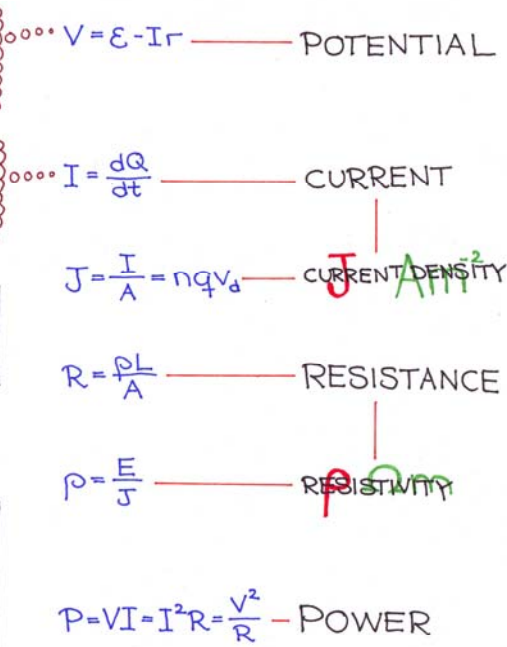 V = ε - Ir — POTENTIAL
I = dQ/dt — CURRENT
J = I/A = nqv_d — CURRENT DENSITY J Am⁻²
R = ρL/A — RESISTANCE
ρ = E/J — RESISTIVITY ρ Ωm
P = VI = I²R = V²/R — POWER